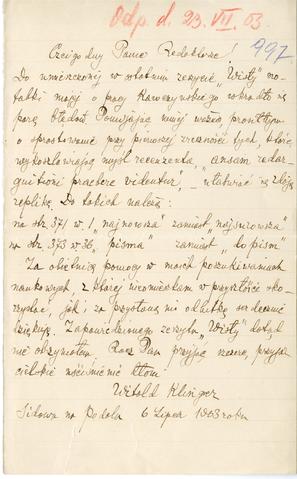 Odp. d. 23. VII. 03.
997
Czcigodny Panie Redaktorze!
Do umieszczonej w ostatnim zeszycie „Wisły" no-
tatki mojej o pracy Kawczyńskiego wkradło się
parę błędów. Pomijając mniej ważne, prosiłbym
o sprostowanie przy pierwszej zręczności tych, które
wykoszlawiając myśl recenzenta, „ansam redar-
guitioni praebere videntur",
replikę. Do takich należą:
na str. 371 w. 1 „najnowsza" zamiast „najsurowsza"
na str. 373 w. 36 „pisma" zamiast „to pism"
Za obietnicę pomocy w moich poszukiwaniach
naukowych, z której nieomieszkam w przyszłości sko-
rzystać, jak i za przysłaną mi odbitkę serdecznie
dziękuję. Zapowiedzianego zeszytu „Wisły" dotąd
nie otrzymałem. Racz Pan przyjąć szczere, przyja-
cielskie uściśnienie dłoni
Witold Klinger
na Podolu 6 Lipca 1903 roku